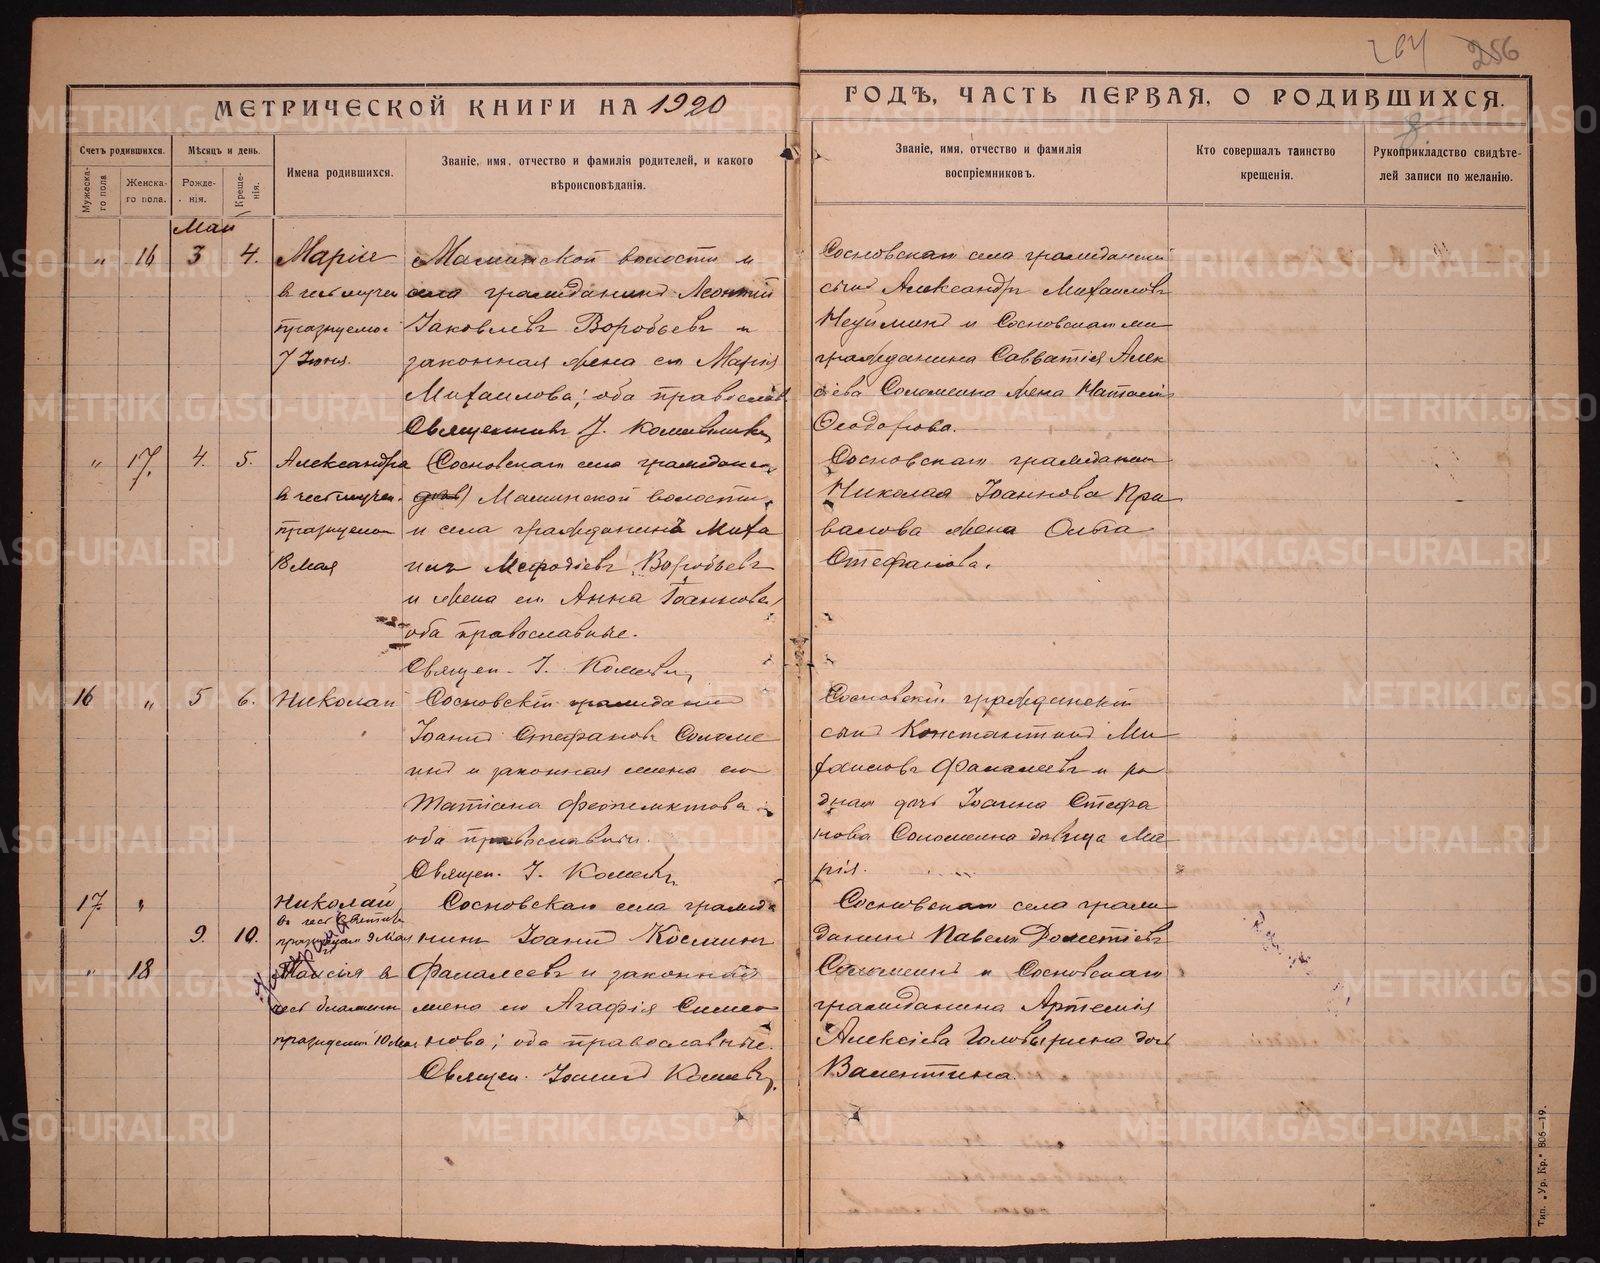 264 256
МЕТРИЧЕСКОЙ КНИГИ НА 1920
ГОДЪ, ЧАСТЬ ПЕРВАЯ, О РОДИВШИХСЯ.
Счетъ родившихся.
Мужеска-го пола
Женска-го пола.
Мѣсяцъ и день.
Рожде-нія.
Креще-нія.
Имена родившихся.
Званіе, имя, отчество и фамилія родителей, и какого
вѣроисповѣданія.
Званіе, имя, отчество и фамилія
воспріемниковъ.
Кто совершалъ таинство
крещенія.
Рукоприкладство свидѣте-
лей записи по желанію.
Май
" 16 3 4. Марія
праздуемой
7 Іюня.
Маминской волости и
села гражданинъ Леонтій
Іаковлевъ Воробьевъ и
законная жена ег Марія
Михаилова; оба православ
Священникъ І.
Сосновскаго села гражданскій
сынъ Александръ Михаиловъ
Неуйминъ и Сосновскаго
гражданина Савватія Алек
сіева Соломеина жена Наталія
Ѳеодорова.
" 17. 4. 5. Александра
18 мая
(Сосновскаго села гражданка
дочь) Маминской волости
и села гражданинъ Миха
илъ Меѳодіевъ Воробьевъ
и жена ег Анна Іоаннова,
оба православные.
Священ. І.
Сосновскаго гражданина
Николая Іоаннова При
валова жена Ольга
Стефанова.
16 " 5 6. Николай
Сосновскій гражданинъ
Іоаннъ Стефановъ Соломе
инъ и законная жена его
Татіана Феоктистова
оба православные.
Священ. І.
Сосновскій гражданскій
сынъ Константинъ Ми
хаиловъ Фалалеевъ и ро
дная дочь Іоанна Стефа
нова Соломеина дѣвица Ма
рія.
17. " Николай
9. 10.
праздуем 9 Мая
" 18 Таисія в
чест блаженн
праздуемой 10 Мая
Сосновскаго села гражда
нинъ Іоаннъ Косминъ
Фалалеевъ и законная
жена его Агафія Симео
нова; оба православные.
Священ. Іоаннъ
Сосновскаго села граж
данинъ Павелъ Дометіевъ
Соломеинъ и Сосновскаго
гражданина Артемія
Алексіева Головырина дочь
Валентина.
Тип. „Ур. Кр." 806—19.
METRIKI.GASO-URAL.RU